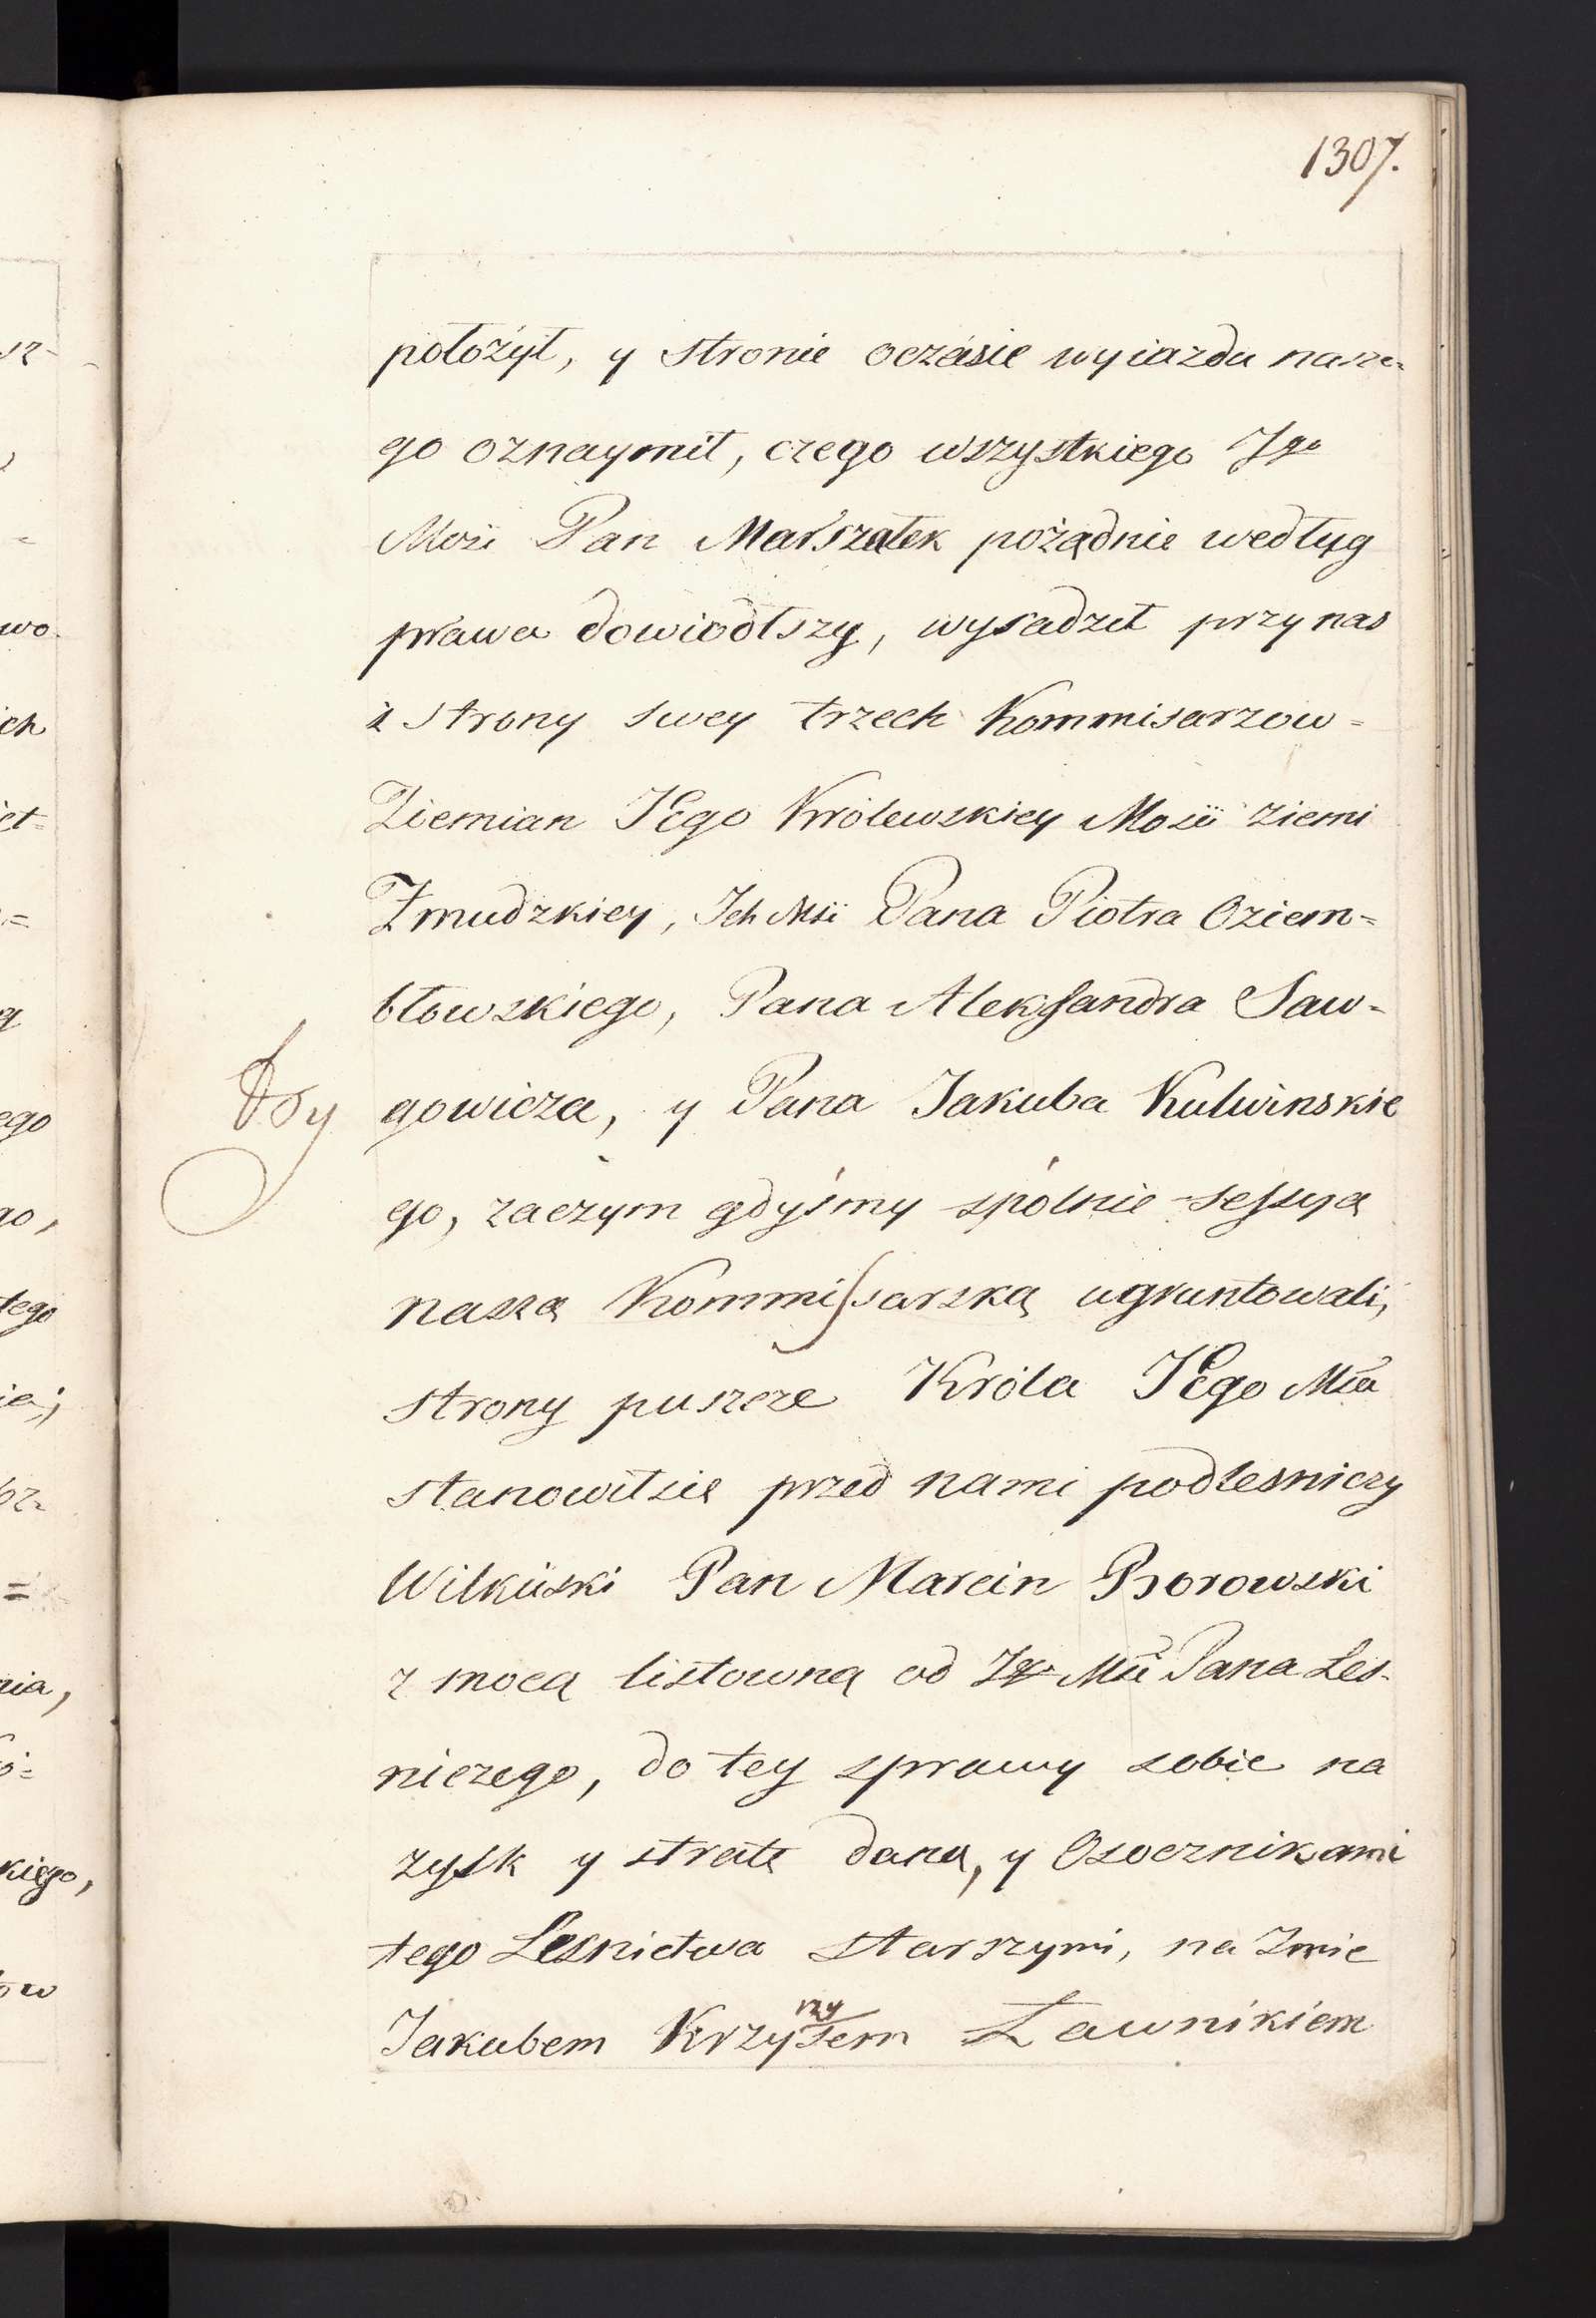 1307.
położył, y stronie oczásie wyiazdu nasze=
go oznaymił, czego wszystkiego Jgo
Mości Pan Marszałek pożądnie według
prawa dowiodłszy, wysadził przy nas
z strony swey trzech Kommisarzow=
Ziemian JEgo Królewskiey Mości ziemi
Żmudzkiey, Ich Mści Pana Piotra Oziem=
błowskiego, Pana Aleksandra Saw=
gowicza, y Pana Jakuba Kulwinskie
go, zaczym gdyśmy spólnie sessyą
naszą Kommissarską ugruntowali,
strony puszcze Króla JEgo Mści
stanowił się przed nami podlesniczy
Wilkiiski Pan Marcin Borowski
z mocą listowną od Jgo Mści Pana Les=
niczego, do tey sprawy sobie na
zysk y stratę daną, y Osocznikami
tego Lesnictwa starszymi, na Imie
Jakubem Krzyszem Ławnikiem